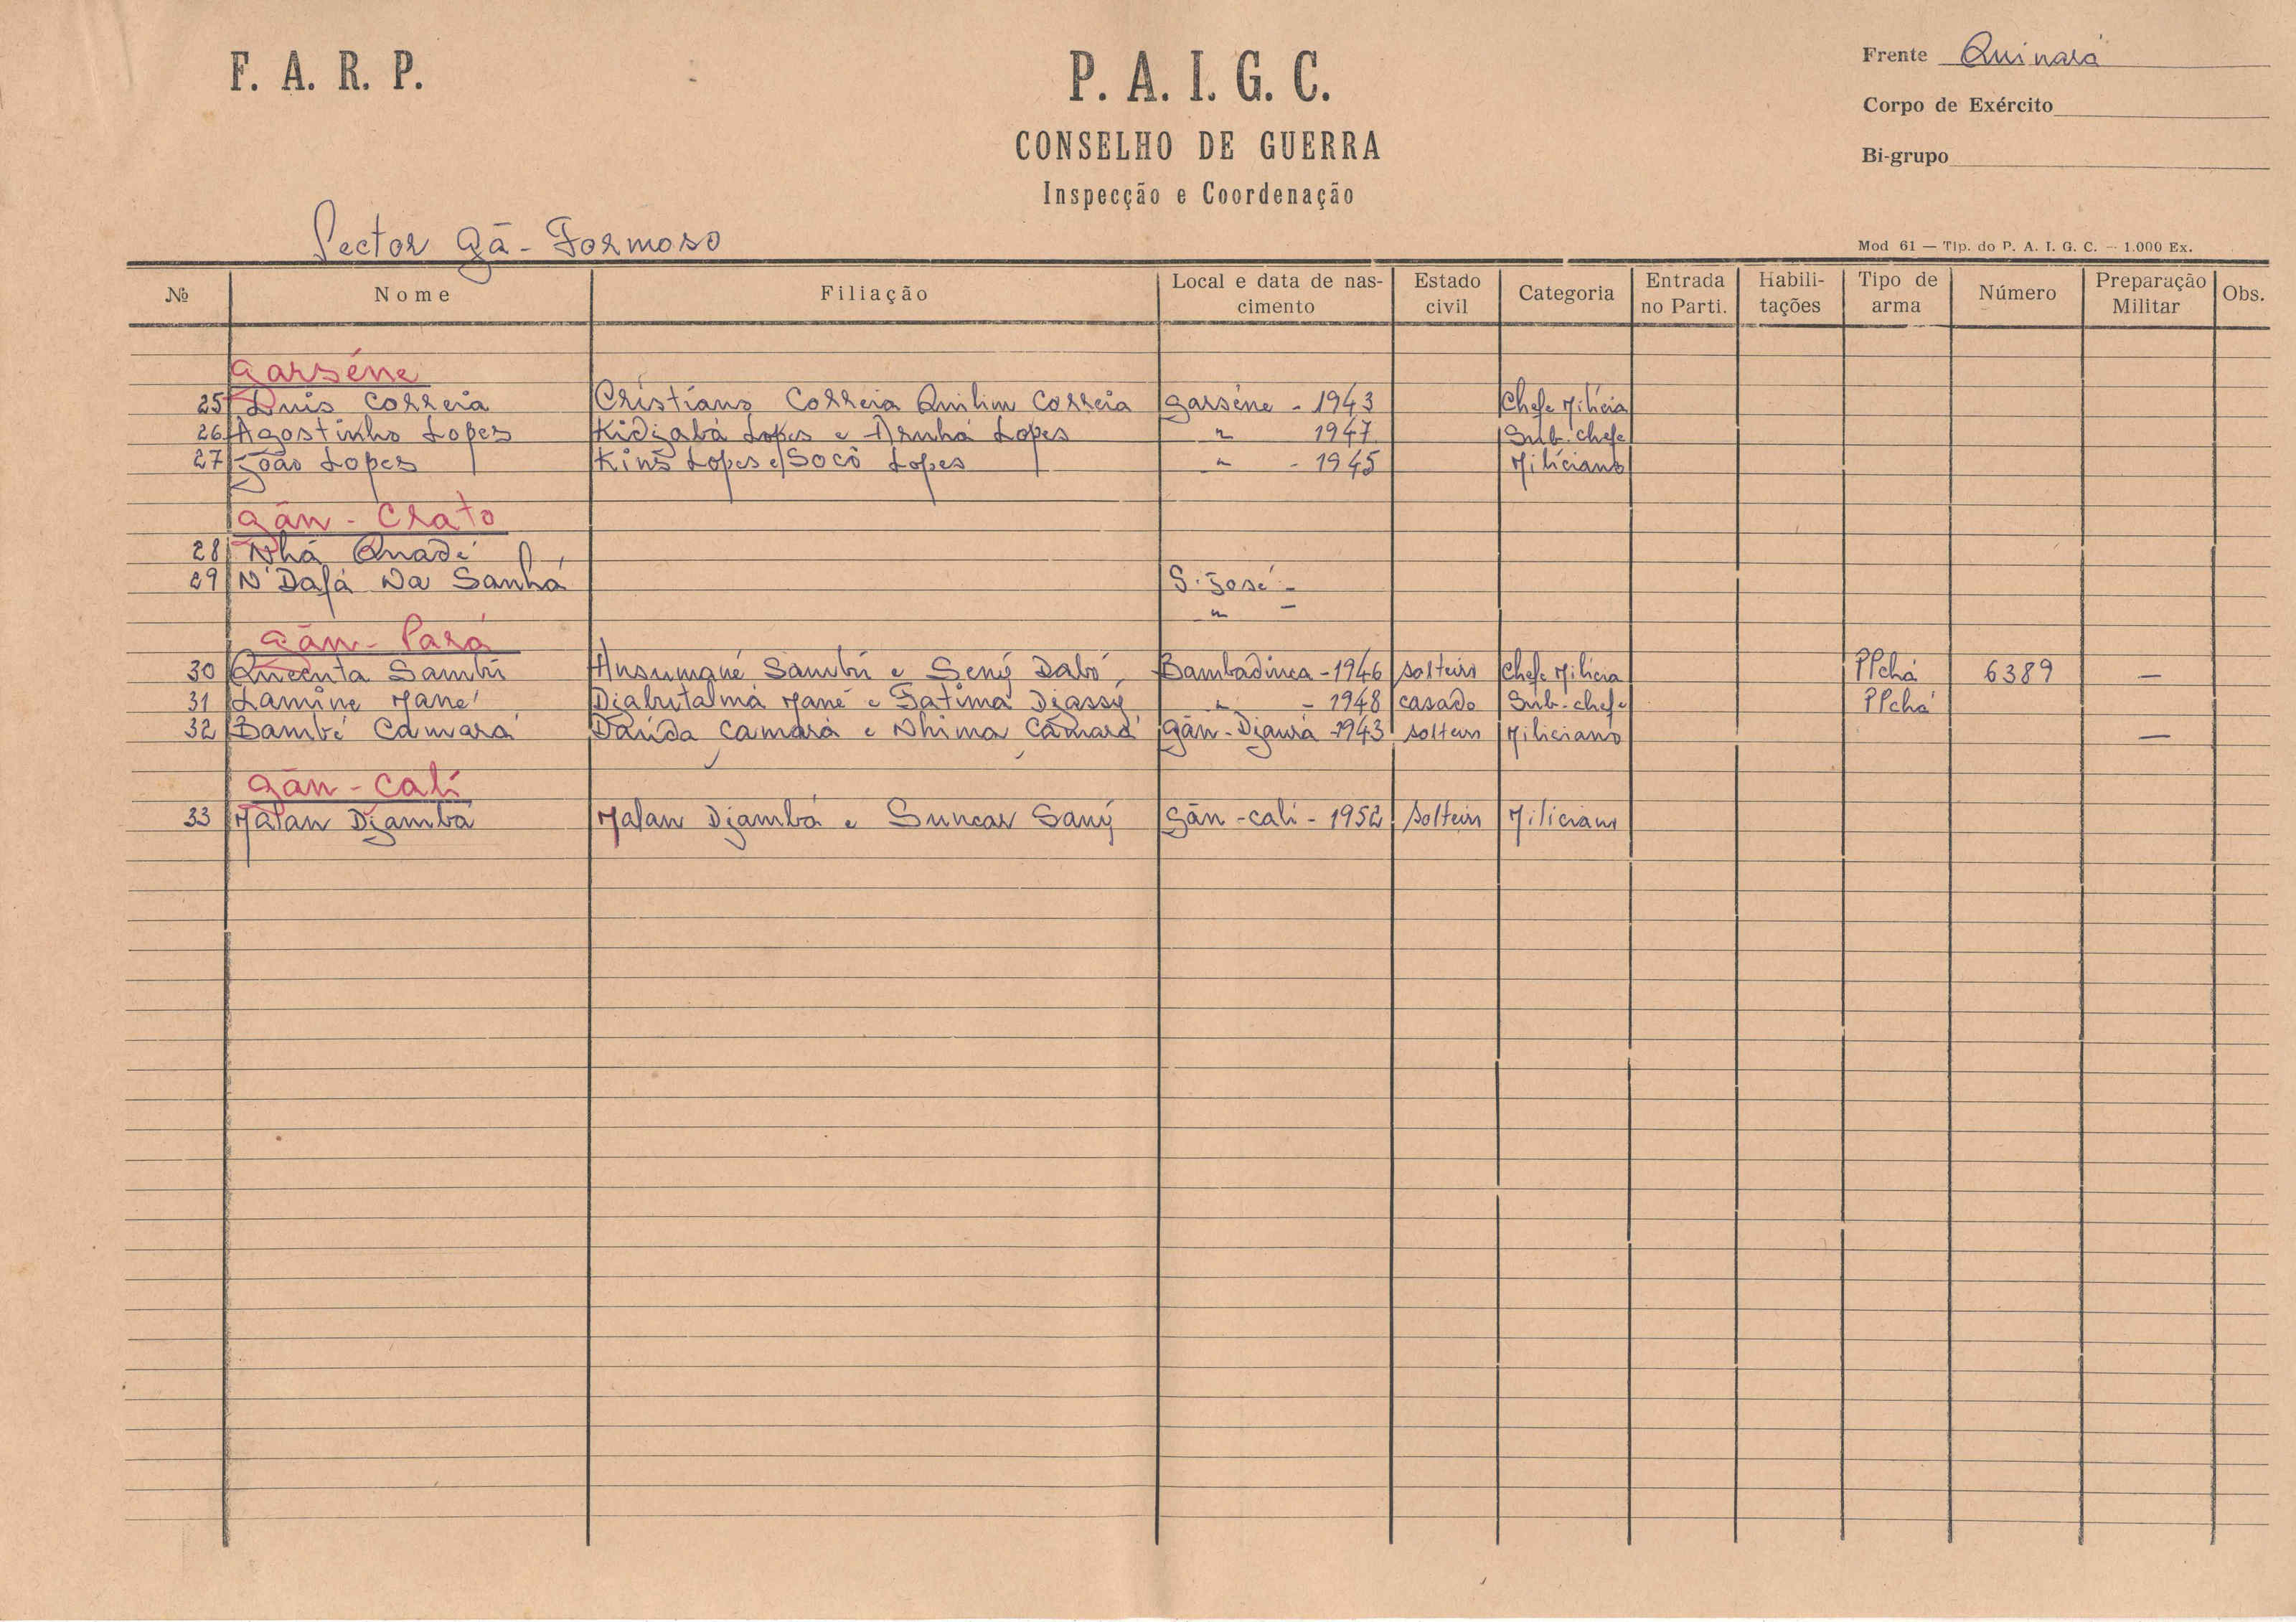 F. A. R. P.
P. A. I. G. C.
CONSELHO DE GUERRA
Inspecção e Coordenação
Frente Quinará
Corpo de Exército
Bi-grupo
Sector Gã-Formoso
Mod 61 — Tip. do P. A. I. G. C. — 1.000 Ex.
№ Nome Filiação Local e data de nascimento Estado civil Categoria Entrada no Parti. Habilitações Tipo de arma Número Preparação Militar Obs.
Garséne
25 Luis Correia Cristiano Correia Quilim Correia Garséne - 1943 Chefe Milicia
26 Agostinho Lopes Kidigabá Lopes e Arnhá Lopes " 1947 Sub-chefe
27 João Lopes Kins Lopes e Socô Lopes " - 1945 Miliciano
Gãn - Crato
28 Nhá Quadé
29 N'Dafá Na Sanhá S. José -
" -
Gãn - Pará
30 Quecuta Sambú Ansumané Sambú e Seny Dabó Bambadinca - 1946 solteiro Chefe Milicia PPchá 6389 —
31 Lamine Mané Djabutalmá Mané e Fatima Djassy " - 1948 casado Sub-chefe PPchá
32 Bambé Camará Daúda Camará e Nhima Camará Gãn-Djaurá - 1943 solteiro Miliciano —
Gãn - Cali
33 Malan Djambá Malan Djambá e Suncar Sany Gãn-cali - 1952 solteiro Miliciano